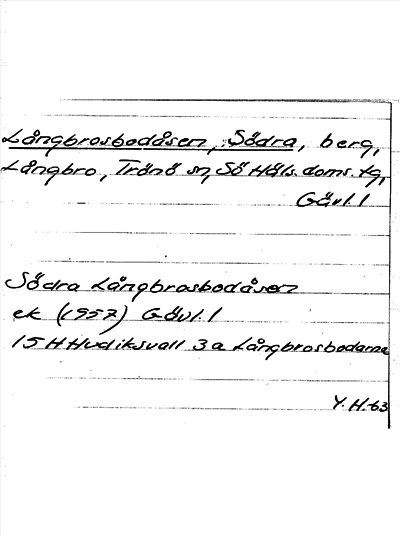 Långbrosbodåsen, Södra, berg,
Långbro, Trönö sn, Sö Häls. doms. tg,
Gävl. l
Södra Långbrosbodåsen
ek (1957) Gävl. l
15 H Hudiksvall 3a Långbrosbodarna
Y. H. -63